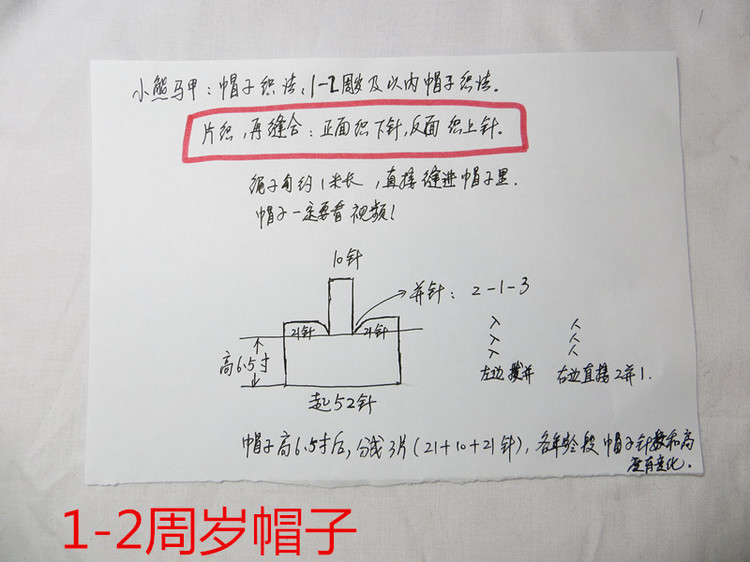 小熊马甲:帽子织法:1-2周岁及以内帽子织法.
片织,再缝合:正面织下针,反面织上针.
绳子有约1米长,直接缝进帽子里.
帽子一定要看视频!
10针
并针: 2-1-3
21针 21针
入 人
入 人
入 人
高6.5寸
左边拨并 右边直接2并1.
起52针
帽子高6.5寸后,分成3片(21+10+21针),各年龄段帽子针数和高
度有变化.
1-2周岁帽子